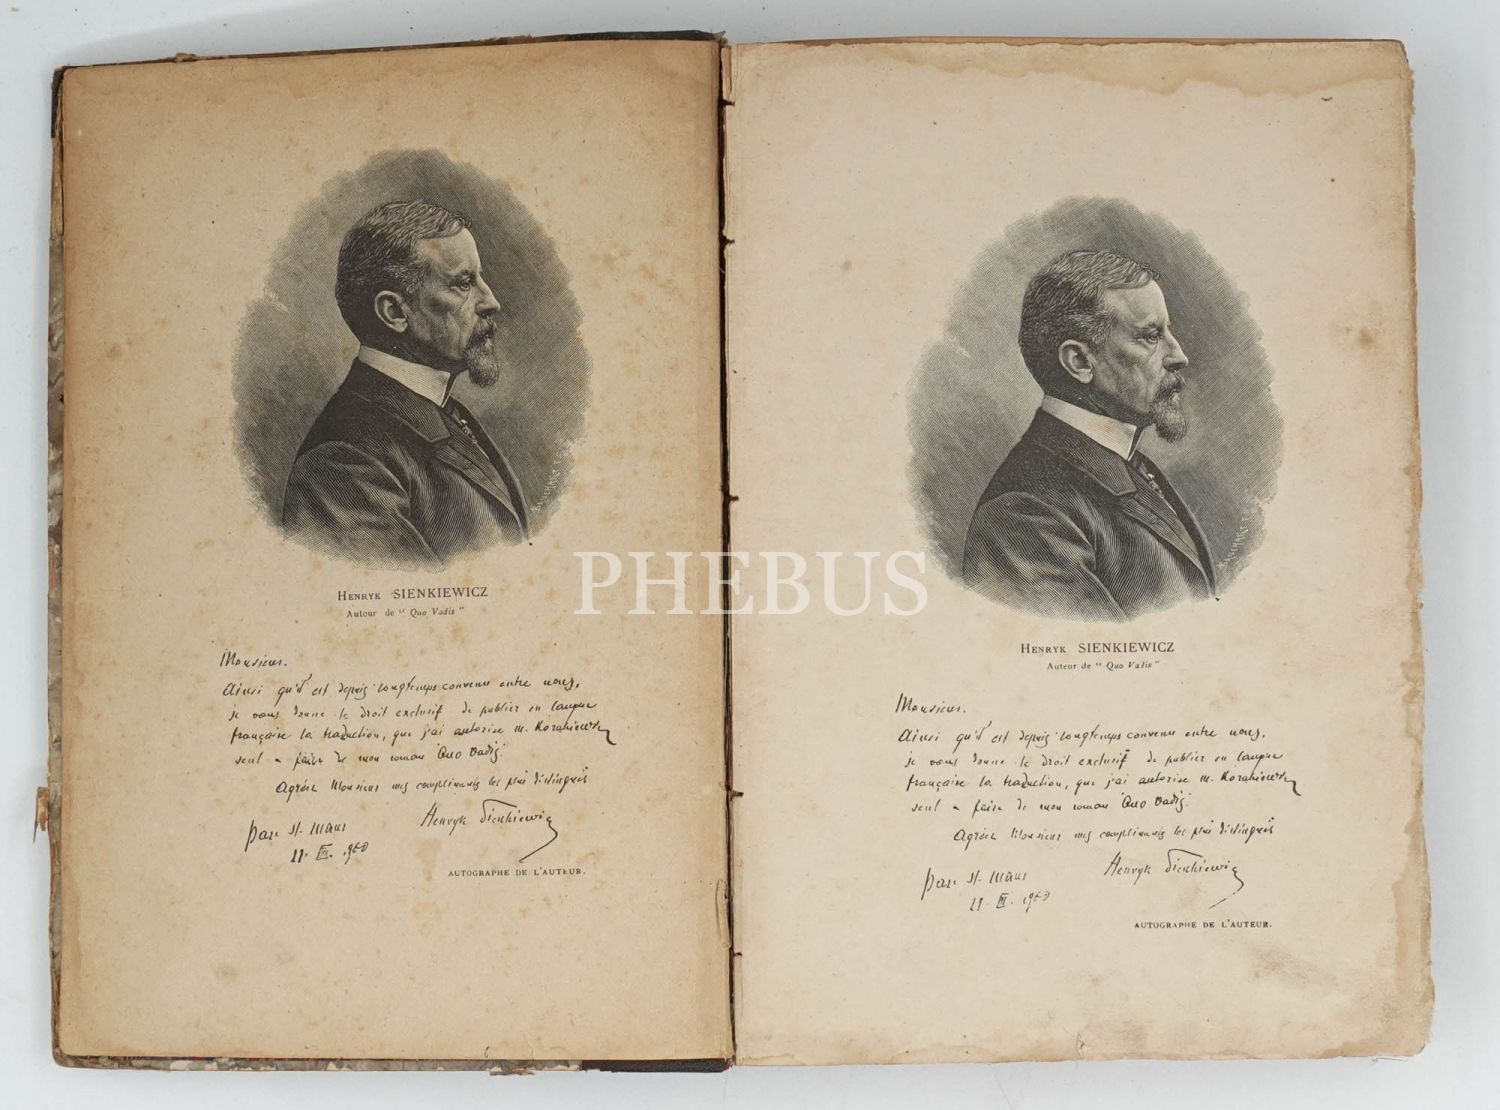 HENRYK SIENKIEWICZ
Auteur de "Quo Vadis"
Monsieur.
Ainsi qu'il est depuis longtemps convenu entre nous,
je vous donne le droit exclusif de publier en langue
française la traduction, que j'ai autorisé M. Kozakiewicz
seul a faire de mon roman "Quo Vadis".
Agréez Monsieur mes compliments les plus distingués
Henryk Sienkiewicz
Parc St. Maur
21. III. 1900
AUTOGRAPHE DE L'AUTEUR.
PHEBUS
HENRYK SIENKIEWICZ
Auteur de "Quo Vadis"
Monsieur.
Ainsi qu'il est depuis longtemps convenu entre nous,
je vous donne le droit exclusif de publier en langue
française la traduction, que j'ai autorisé M. Kozakiewicz
seul a faire de mon roman "Quo Vadis".
Agréez Monsieur mes compliments les plus distingués
Henryk Sienkiewicz
Parc St. Maur
21. III. 1900
AUTOGRAPHE DE L'AUTEUR.